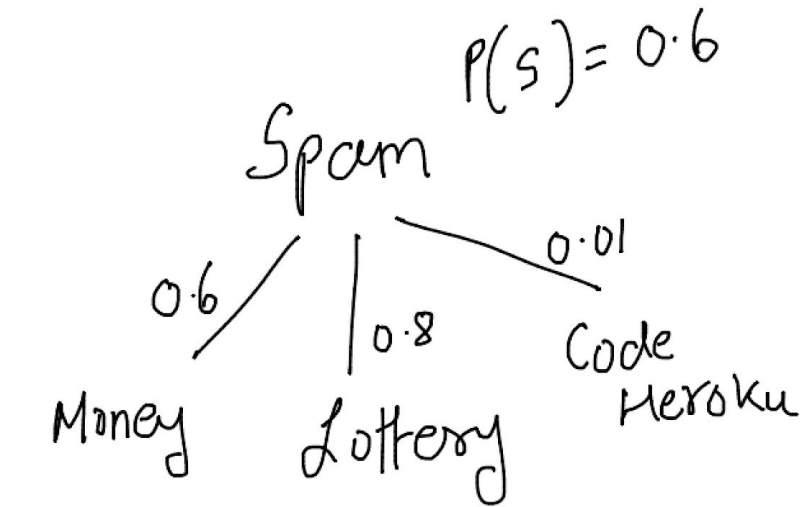 P(S)= 0.6
Spam
0.6
0.8
0.01
Money
Lottery
Code
Heroku